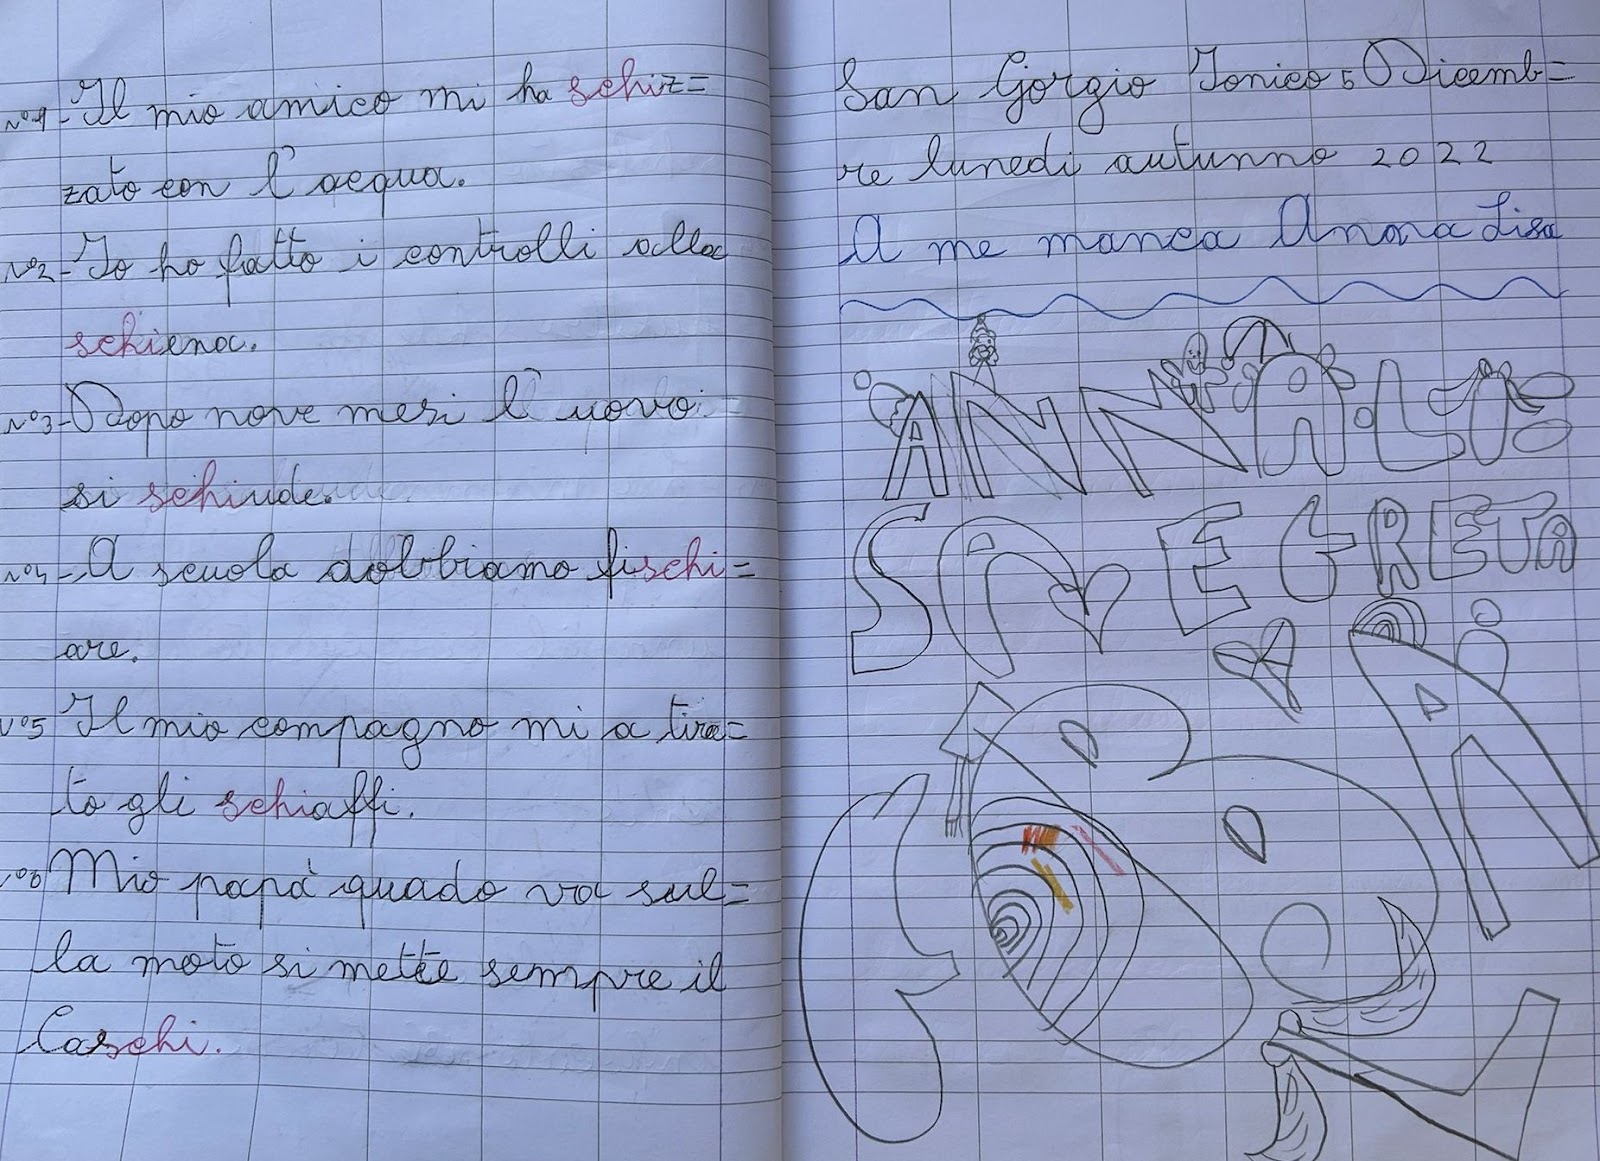 N°1-Il mio amico mi ha schiz=
zato con l'acqua.
N°2-Io ho fatto i controlli alla
schiena.
N°3-Dopo nove mesi l'uovo
si schiude.
N°4-A scuola dobbiamo fischi=
are.
N°5 Il mio compagno mi a tira=
to gli schiaffi.
N°6 Mio papà quado va sul=
la moto si mette sempre il
Caschi.
San Gorgio Ionico 5 Dicemb=
re lunedì autunno 2022
A me manca Anna Lisa
ANNALI
SA E GRETA